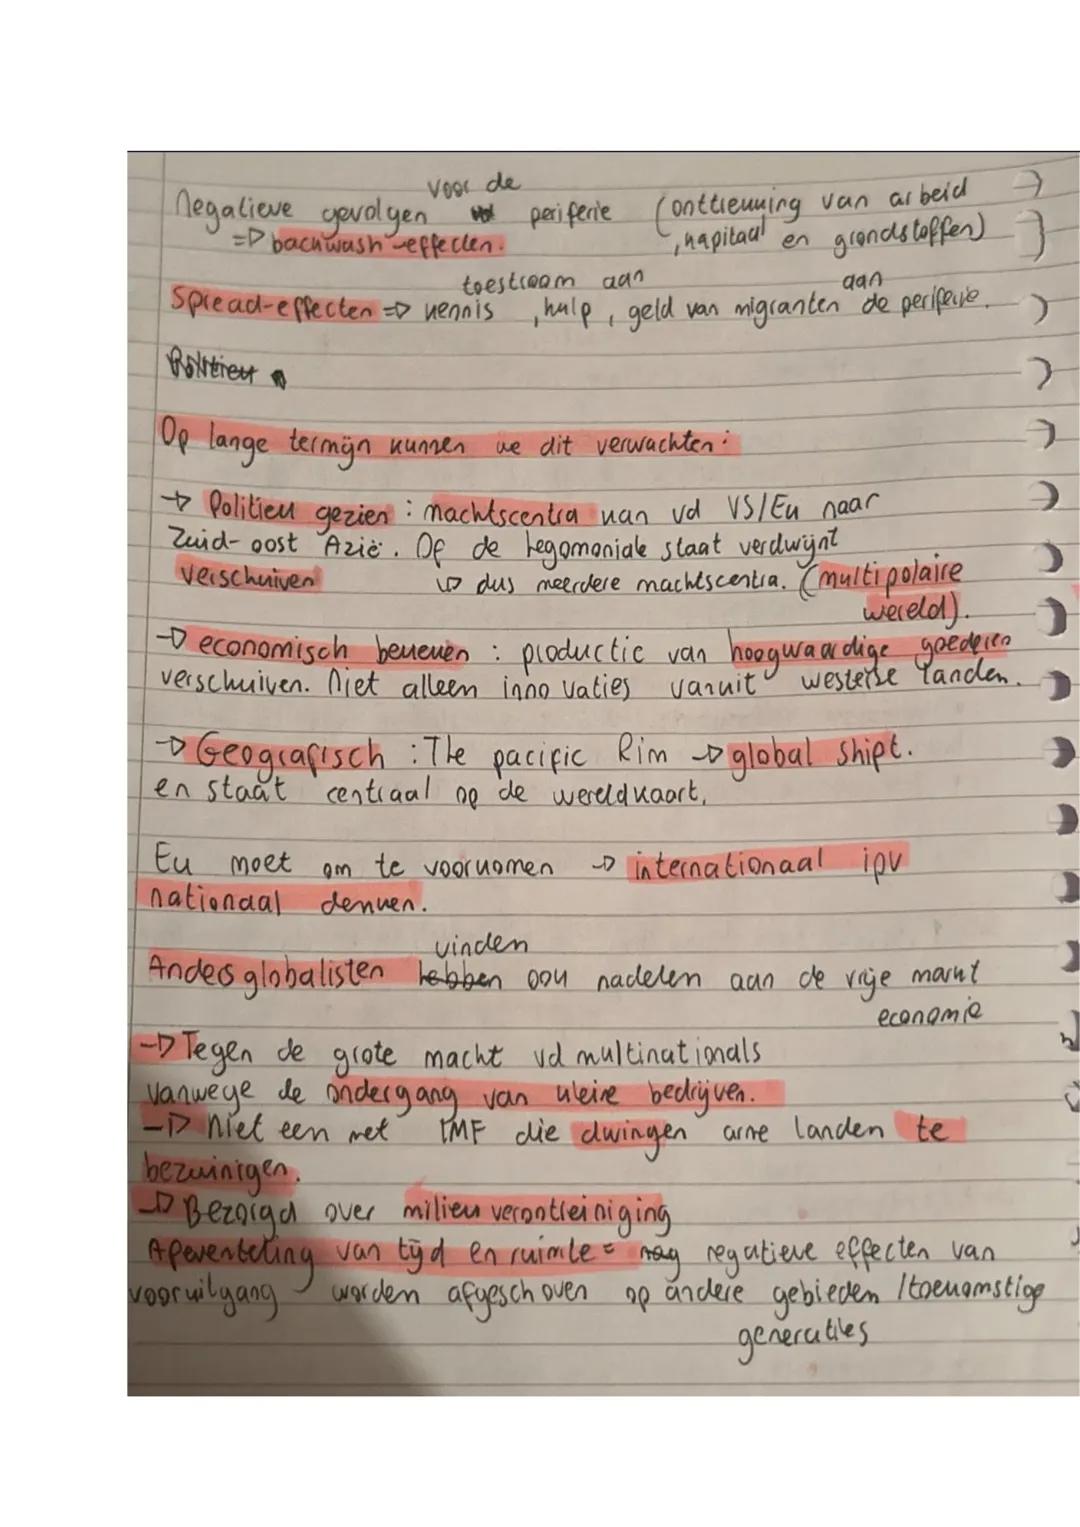 voor de
negatieve gevolgen periferie (onttrekking van arbeid
=> backwash-effecten. , kapitaal en grondstoffen)
toestroom aan aan
Spread-effecten => kennis , hulp , geld van migranten de periferie.
Politiek
Op lange termijn kunnen we dit verwachten:
→ Politiek gezien : machtscentra kan vd VS/Eu naar
Zuid-oost Azië. Of de hegomoniale staat verdwijnt
verschuiven ↳ dus meerdere machtscentra. (multipolaire
wereld).
→ economisch bekeken : productie van hoogwaardige goederen
verschuiven. Niet alleen innovaties vanuit westerse landen.
→ Geografisch : The pacific Rim → global shipt.
en staat centraal op de wereldkaart.
Eu moet om te voorkomen → internationaal ipv
nationaal denken.
vinden
Anders globalisten hebben ook nadelen aan de vrije markt
economie
→ Tegen de grote macht vd multinationals
vanwege de ondergang van kleine bedrijven.
→ Niet een met IMF die dwingen arme landen te
bezuinigen.
→ Bezorgd over milieu verontreiniging
Afwenteling van tijd en ruimte = negatieve effecten van
vooruitgang worden afgeschoven op andere gebieden / toekomstige
generaties